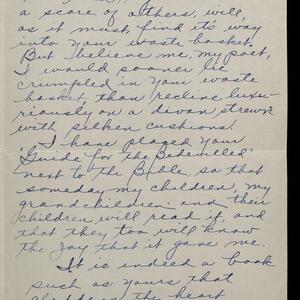 a score of others, will,
as it must, find it's way
into your waste basket.
But believe me, my poet,
I would sooner lie
crumpled in your waste
basket, than recline luxu-
riously on a divan strewn
with silken cushions.
I have placed your
"Guide for the Bedevilled"
next to the Bible, so that
someday my children, my
grandchildren and their
children will read it, and
that they too will know
the joy that it gave me.
It is indeed a book
such as yours that
the heart